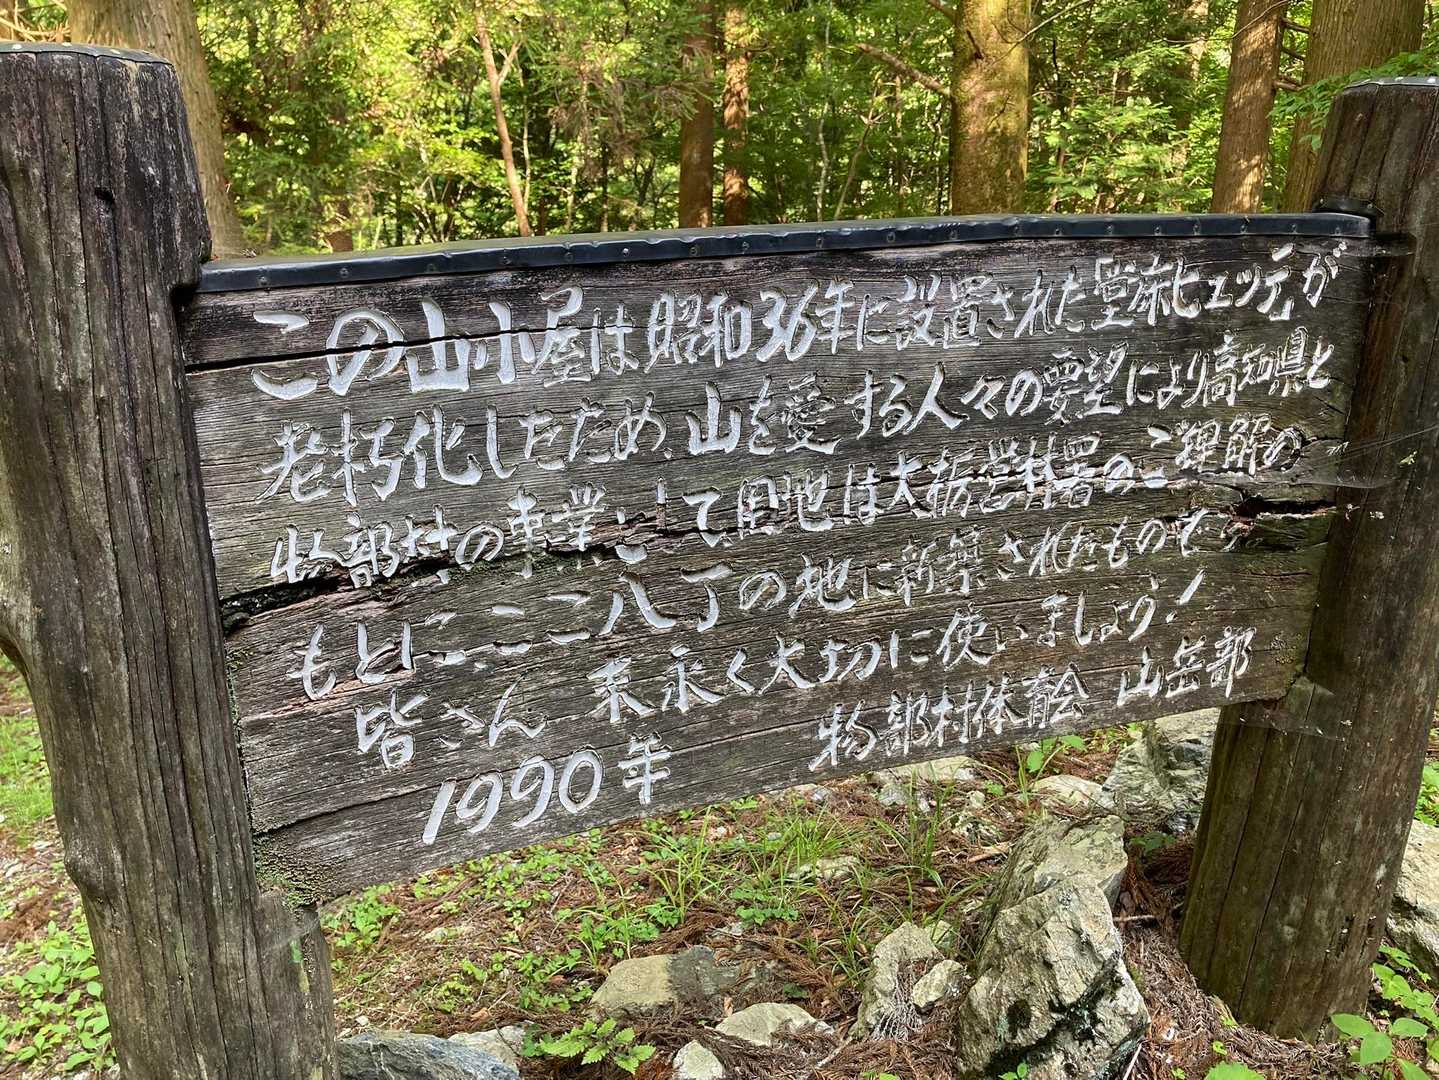 この山小屋は昭和36年に設置された堂床ヒュッテが
老朽化したため、山を愛する人々の要望により高知県と
物部村の事業として用地は大栃営林署のご理解の
もとに、ここ八丁の地に新築されたものです。
皆さん 末永く大切に使いましょう!
1990年 物部村体育会 山岳部